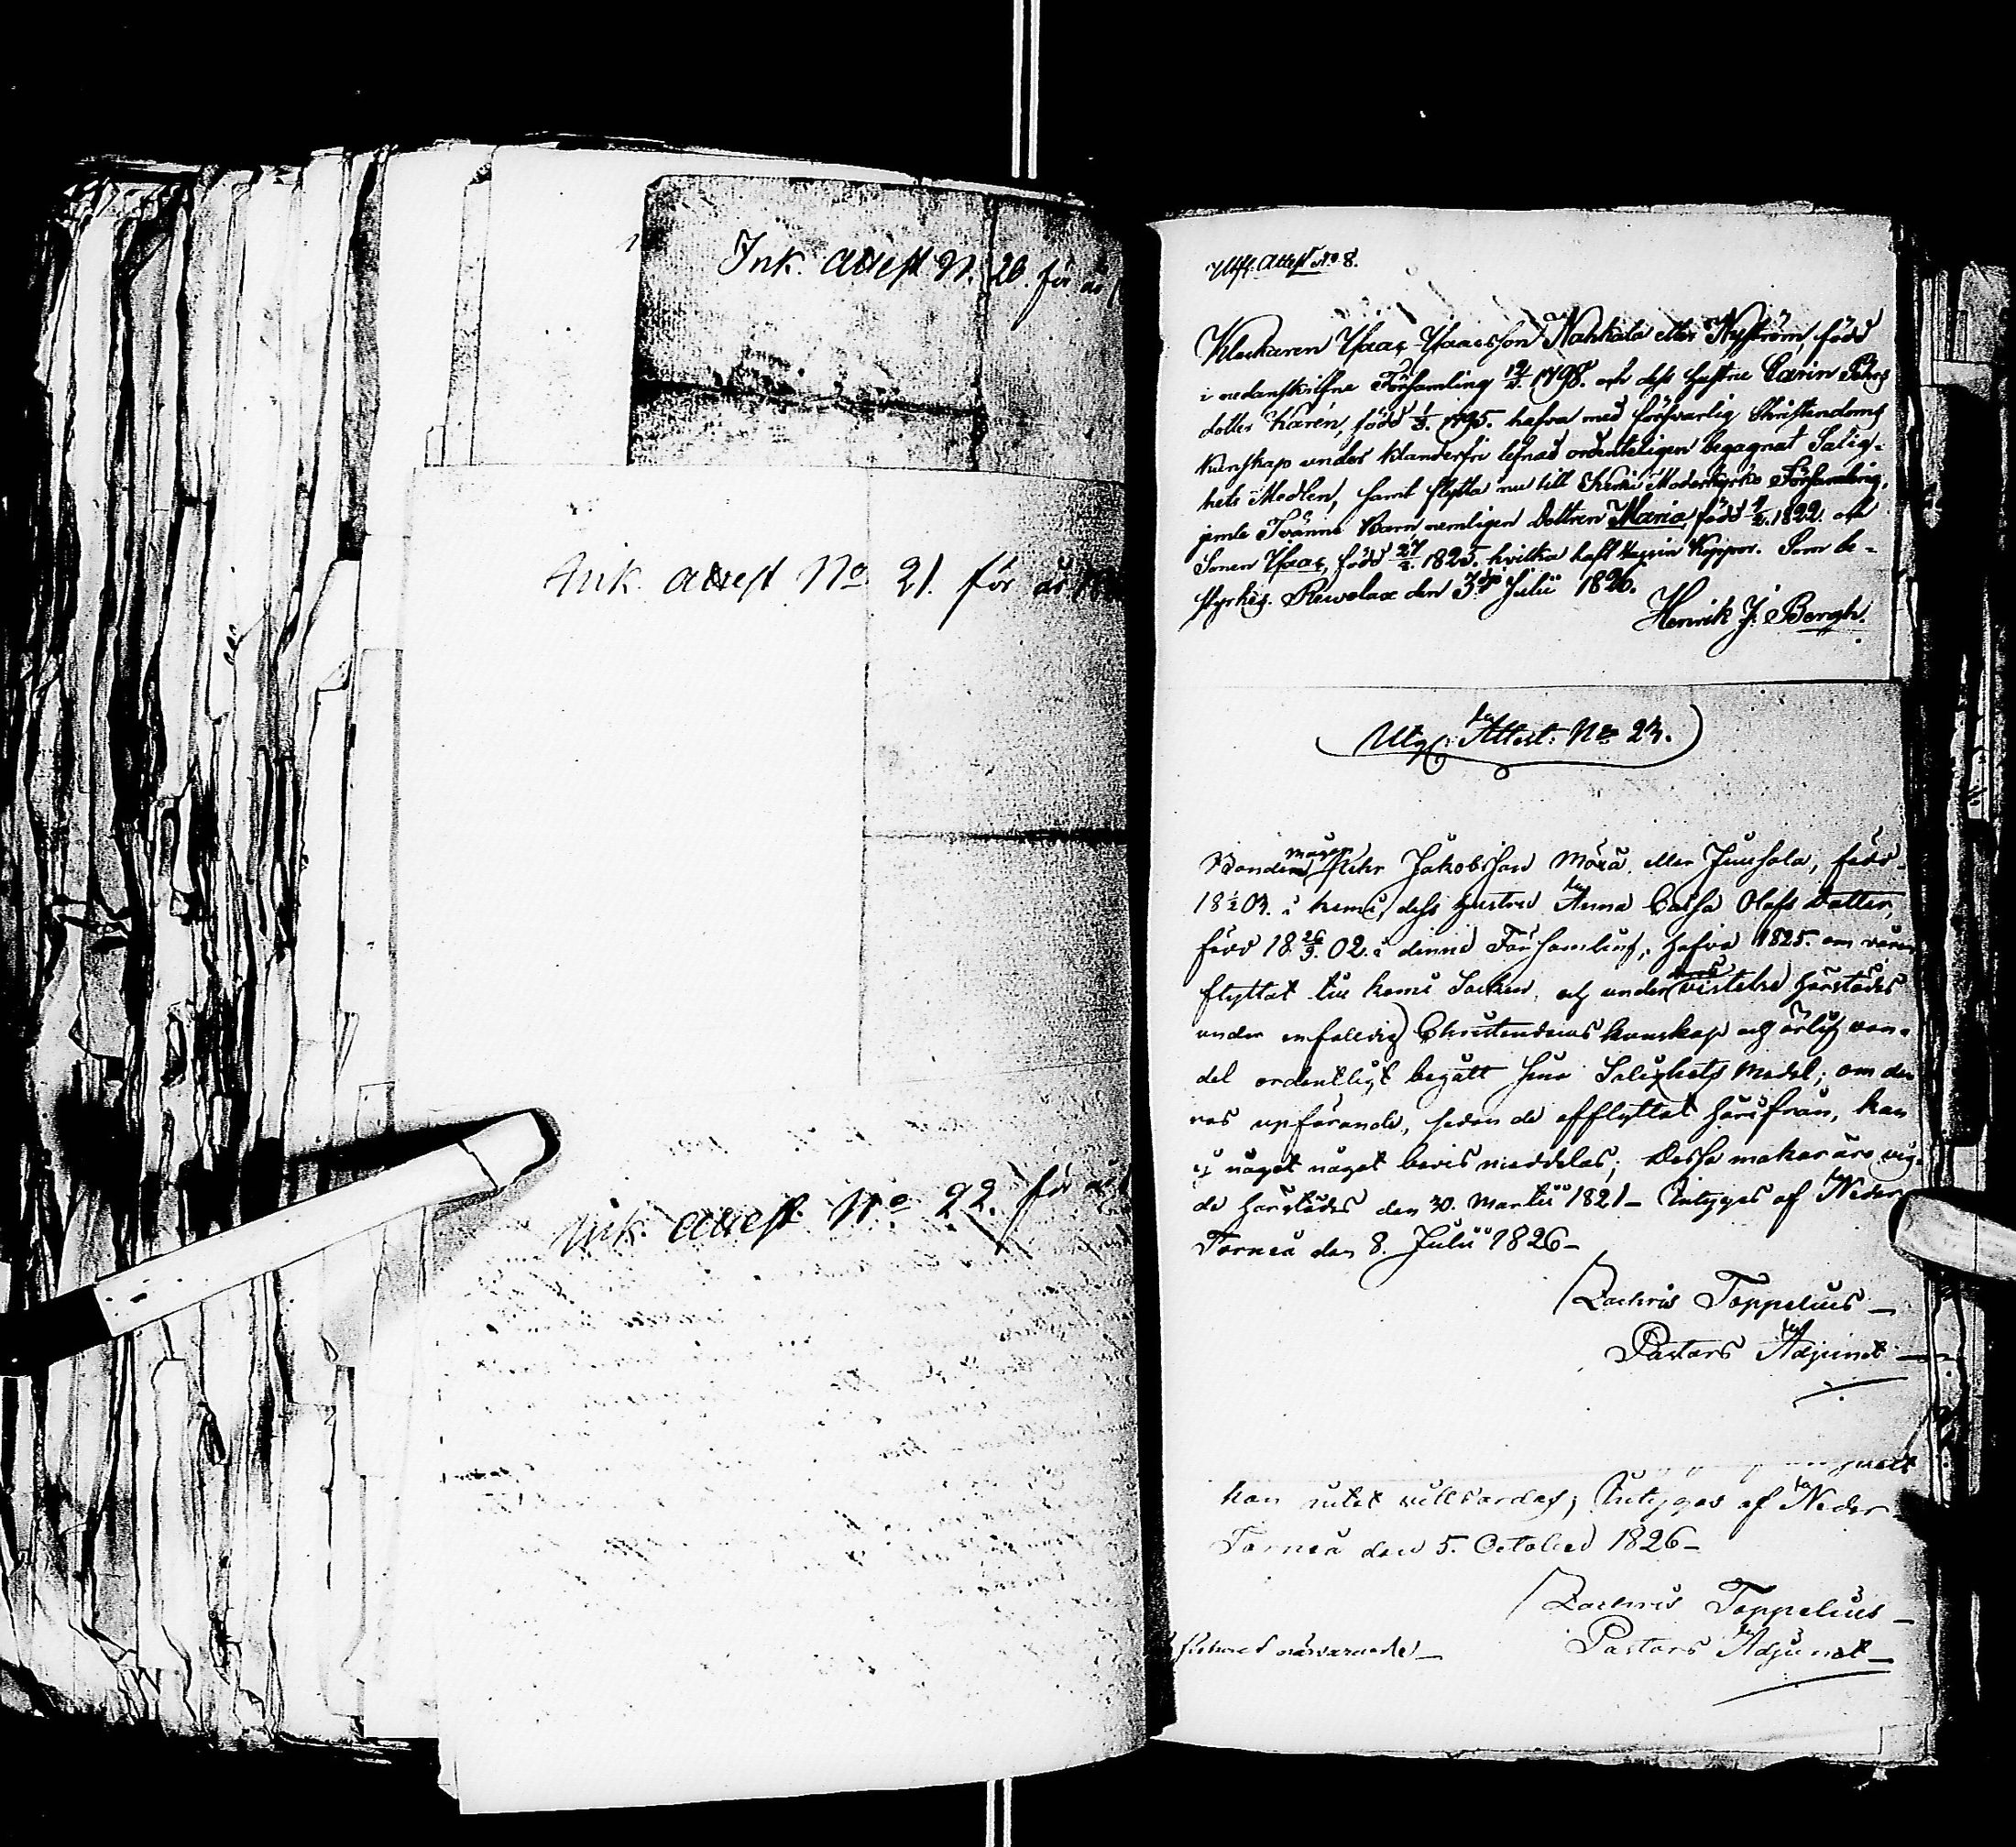 Ink. attest N. 20. för år
Ink. attest No 21. för år 18
Ink. attest No 22. för år 1
Utfl. Attest No 8.
Klockaren Isaac Isaacsson Nahkala eller Nyström, född
i nedanskrifne Församling 19/5. 1798. och dess hustru Carin Pehrs
dotter Karén, född 1/3. 1795. hafva med försvarlig Christendoms
kunskap under klanderfri lefnad ordenteligen begagnat Salig-
hets Medlen, samt flytta nu till Kemi Moderkyrko Församling,
jemte Tvänne Barn nemligen Dottren Maria, född 4/2. 1822. och
Sonen Isaac, född 27/2. 1825. hvilka haft Vaccin Koppor. Som be-
styrkes. Rewolax den 3dje Julii 1826.
Henrik J. Bergh.
Utg: Attest: No 23.
Bonden mågen Pehr Jakobsson Möxä eller Juusola, född
18 1/2 03. i Kemi, dess hustru Anna Caisa Olofs Dotter,
född 18 26/9. 02. i denne Församling, hafva 1825. om våren
flyttat till Kemi Socken, och under vistelse härstädes
under enfaldig Christendoms kunskap och ärlig van-
del ordentligt begått sina Salighets medel; om de-
ras upförande, sedan de afflyttat härifrån, kan
ej något något bevis meddelas; Dessa makar äro vig-
de härstädes den 30. Martii 1821_ Intygas af Neder
Torneå den 8. Julii 1826_
Zachris Toppelius_
Pastors Adjunct_
kan intet villfardas; Intygas af Neder-
Torneå den 5. October 1826_
Zachris Toppelius_
närvarande_ Pastors Adjunct_